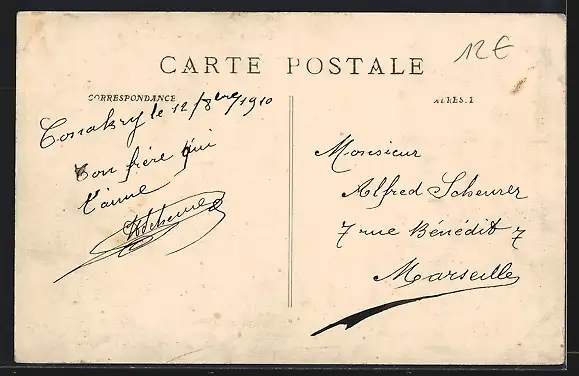 12€
CARTE POSTALE
CORRESPONDANCE
Conakry le 12/8bre/1910
Ton frère qui
t'aime
Monsieur
Alfred Scheurer
7 rue Bénédit 7
Marseille